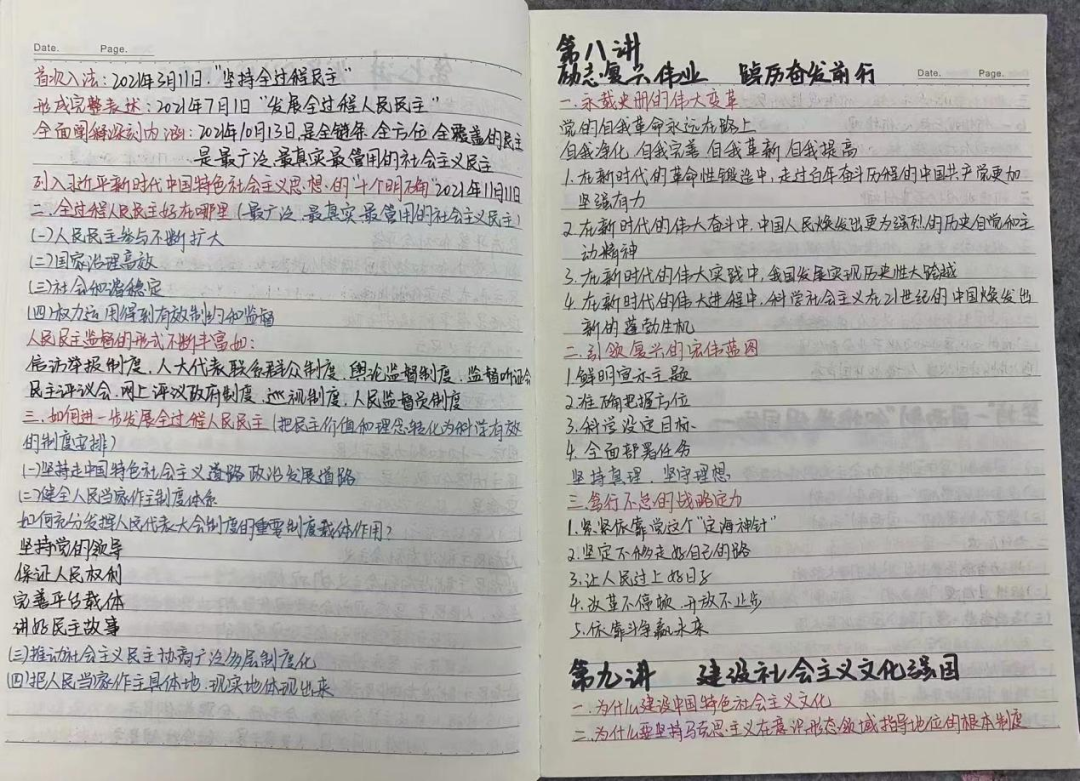 Date. Page.
首次入法:2021年3月11日."坚持全过程民主"
形成完整表述:2021年7月1日"发展全过程人民民主"
全面阐释深刻内涵:2021年10月13日是全链条.全方位.全覆盖的民主
是最广泛.最真实最管用的社会主义民主
引入习近平新时代中国特色社会主义思想的"十个明确"2021年11月11日
二.全过程人民民主好在哪里(最广泛.最真实最管用的社会主义民主)
(一)人民民主参与不断扩大
(二)国家治理高效
(三)社会和谐稳定
(四)权力运用得到有效制约和监督
人民民主监督的形式不断丰富如:
信访举报制度,人大代表联名群众制度,舆论监督制度,监督听证会
民主评议会,网上评议政府制度,巡视制度,人民监督员制度
三.如何进一步发展全过程人民民主(把民主价值和理念转化为科学有效
的制度安排)
(一)坚持走中国特色社会主义道路政治发展道路
(二)健全人民当家作主制度体系
如何充分发挥人民代表大会制度的重要制度载体作用?
坚持党的领导
保证人民权利
完善平台载体
讲好民主故事
(三)推动社会主义民主协商广泛多层制度化
(四)把人民当家作主具体地.现实地体现出来
第八讲
励志复兴伟业 踔厉奋发前行
Date. Page.
一.永载史册的伟大变革
党的自我革命永远在路上
自我净化.自我完善.自我革新.自我提高
1.在新时代的革命性锻造中,走过百年奋斗历程的中国共产党更加
坚强有力
2.在新时代的伟大奋斗中,中国人民焕发出更为强烈的历史自觉和主
动精神
3.在新时代的伟大实践中,我国发展实现历史性大跨越
4.在新时代的伟大进程中,科学社会主义在21世纪的中国焕发出
新的蓬勃生机
二.引领复兴的宏伟蓝图
1.鲜明宣示主题
2.准确把握方位
3.科学设定目标
4.全面部署任务
坚持真理.坚守理想
三.笃行不怠的战略定力
1.紧紧依靠党这个"定海神针"
2.坚定不移走好自己的路
3.让人民过上好日子
4.改革不停顿.开放不止步
5.依靠斗争赢未来
第九讲 建设社会主义文化强国
一.为什么建设中国特色社会主义文化
二.为什么要坚持马克思主义在意识形态领域指导地位的根本制度